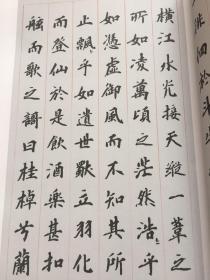 橫江水光接天縱一葦之
所如凌萬頃之茫然浩〻乎
如憑虛御風而不知其所
止飄〻乎如遺世獨立羽化
而登仙於是飲酒樂甚扣
舷而歌之謌曰桂棹兮蘭